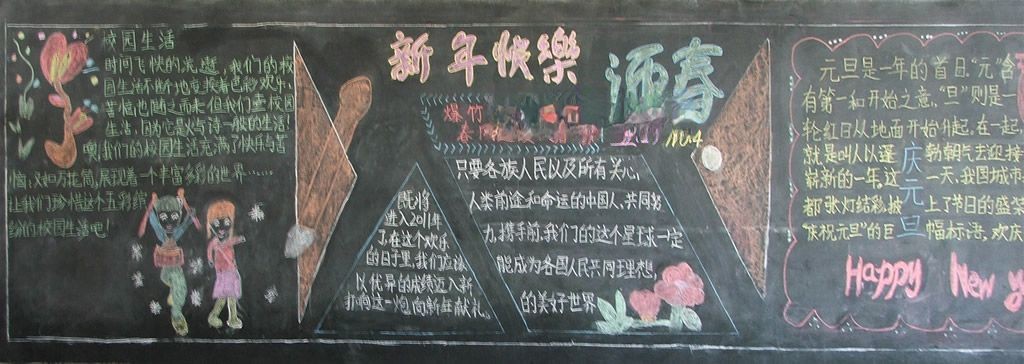 校园生活
时间飞快的流逝,我们的校
园生活不断地变换着色彩,欢乐、
苦恼也随之而来,但我们重校园
生活,因为它是火与诗一般的生活!
噢,我们的校园生活充满了快乐与苦
恼,义如万花筒,展现着一个丰富多彩的世界……
让我们珍惜这个五彩缤
纷的校园生活吧!
新年快樂
迎春
爆竹
春
只要各族人民以及所有关心
人类前途和命运的中国人,共同努
力,携手前,我们的这个星球一定
能成为各国人民共同理想,
的美好世界
既将
进入2011年
了,在这个欢乐
的日子里,我们应该
以优异的成绩迈入新
打响这一炮,向新年献礼。
元旦是一年的首日.“元”含
有第一和开始之意,“旦”则是一
轮红日从地面开始升起,在一起,
就是叫人以蓬 勃朝气去迎接
崭新的一年,这 一天,我国城市
都张灯结彩,披 上了节日的盛装
“庆祝元旦”的巨 幅标语,欢庆
庆元旦
Happy New y